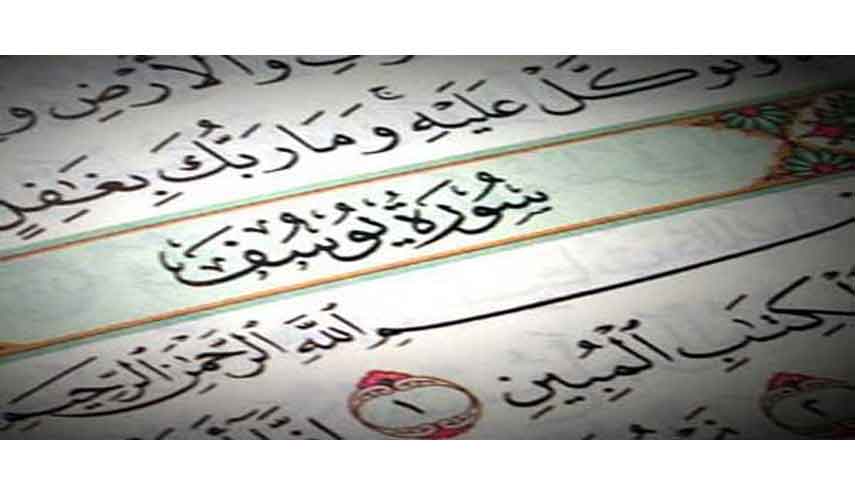 وَالْأَرْضِ
وَتَوَكَّلْ عَلَيْهِ وَمَا رَبُّكَ بِغَٰفِلٍ
سُورَةُ يُوسُفَ
بِسْمِ اللَّهِ الرَّحْمَٰنِ الرَّحِيمِ
الْكِتَٰبِ الْمُبِينِ ١
٢